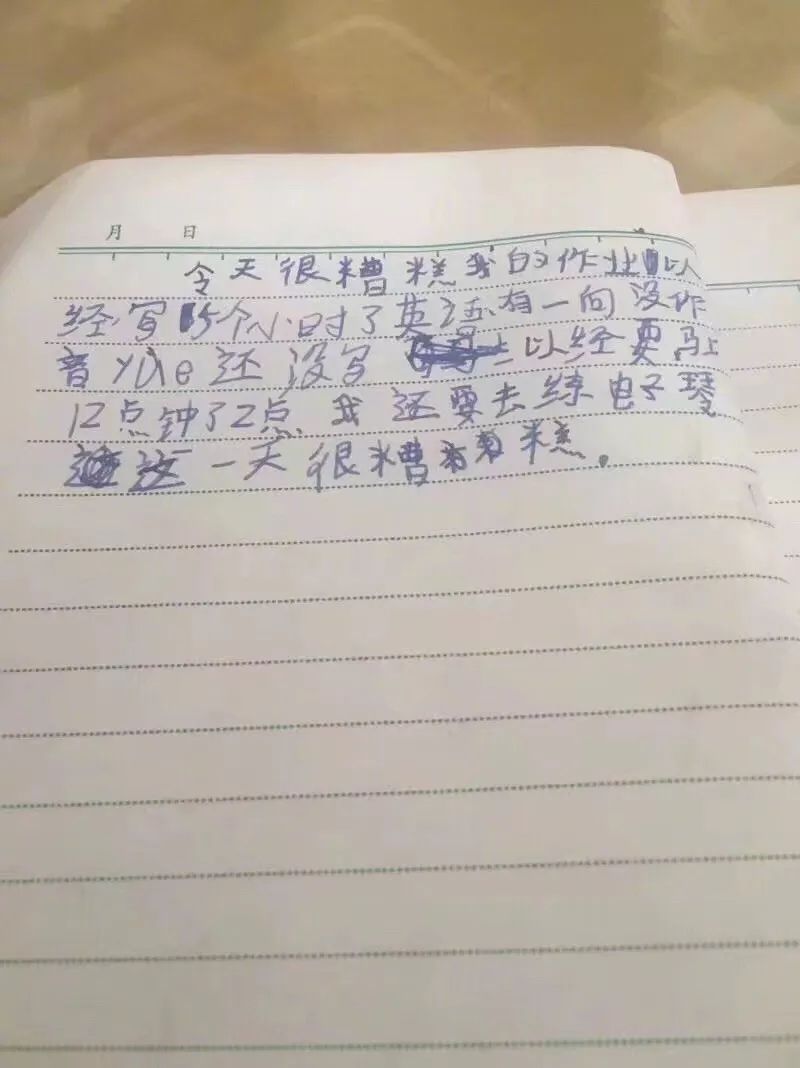 月 日
令天很糟糕我的作业以
经写5个小时了英语有一问没作
音yue还没写 以经要
12点钟了2点我还要去练电子琴
这一天很糟糕。